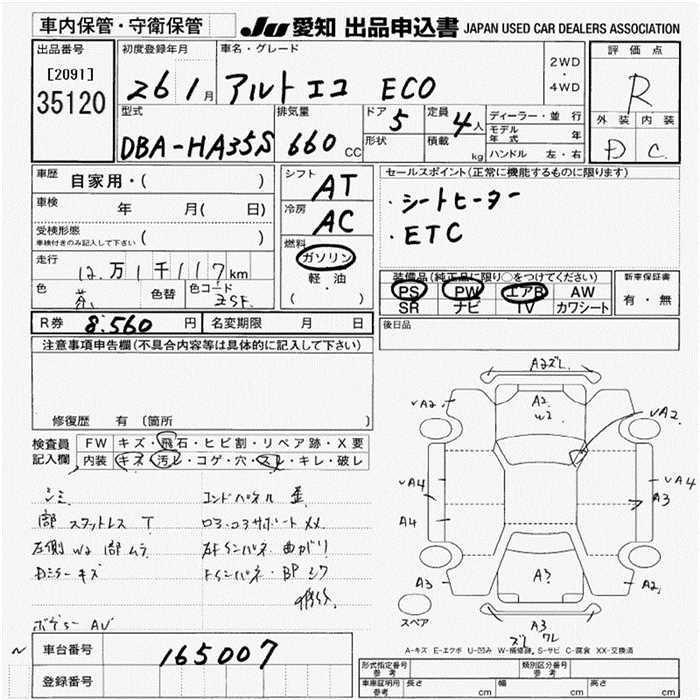 車内保管・守衛保管
JU 愛知 出品申込書 JAPAN USED CAR DEALERS ASSOCIATION
出品番号
[2091]
35120
初度登録年月
26 1月
車名・グレード
アルト エコ ECO
2WD
・
4WD
評価点
R
外装 内装
D C
型式
DBA-HA35S
排気量
660 CC
ドア
5
形状
定員
4人
積載
kg
ディーラー・並行
モデル年式 年
ハンドル 左・右
車歴
自家用・( )
車検
年 月( 日)
受検形態
車検付きのみ記入して下さい ( )
走行
12万1千117km
色
色替
色コード
ZSF
シフト
AT
冷房
AC
燃料
ガソリン
軽・油
( )
セールスポイント(正常に機能するものに限ります)
・シートヒーター
・ETC
装備品(純正品に限り○をつけてください)
PS PW エアB AW
SR ナビ TV カワシート
新車保証書
有・無
R券 8.560 円
名変期限 月 日
後日品
注意事項申告欄(不具合内容等は具体的に記入して下さい)
修復歴 有〔箇所 〕
検査員記入欄
FW キズ・飛石・ヒビ割・リペア跡・X要
内装 キズ・汚レ・コゲ・穴・スレ・キレ・破レ
シミ
コンドパネル 歪
スタットレス T
コアサポート XX
左側 W2 ムラ
インパネ 曲がり
Dミラーキズ
インパネ・BP
ボデー AV
A2ズレ
A2
W2
A2
A2
A4
A4
A4
A3
A3
A3
A2
A3
ズレ ワレ
スペア
A-キズ E-エクボ U-凹み W-補修跡 S-サビ C-腐食 XX-交換済
〜
車台番号
165007
登録番号
形式指定番号 参考
類別区分番号 参考
車庫証明用 参考
長さ cm
幅 cm
高さ cm